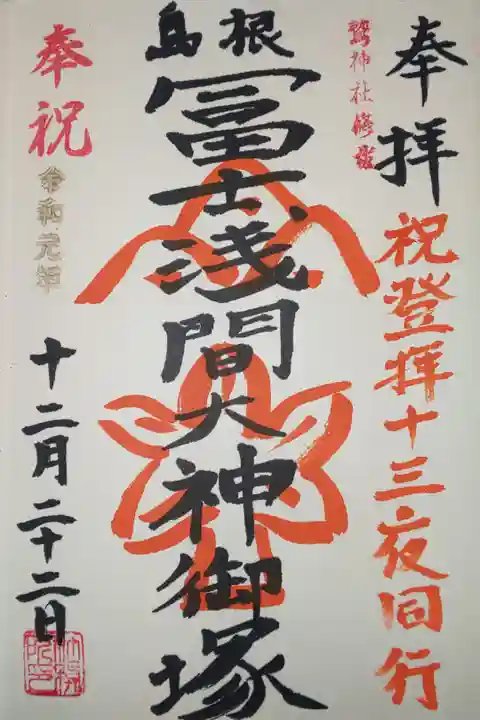 奉拝
鷲神社修鼓
祝登拝十三夜同行
島根
冨士浅間大神御塚
奉祝
令和元年
十二月二十二日